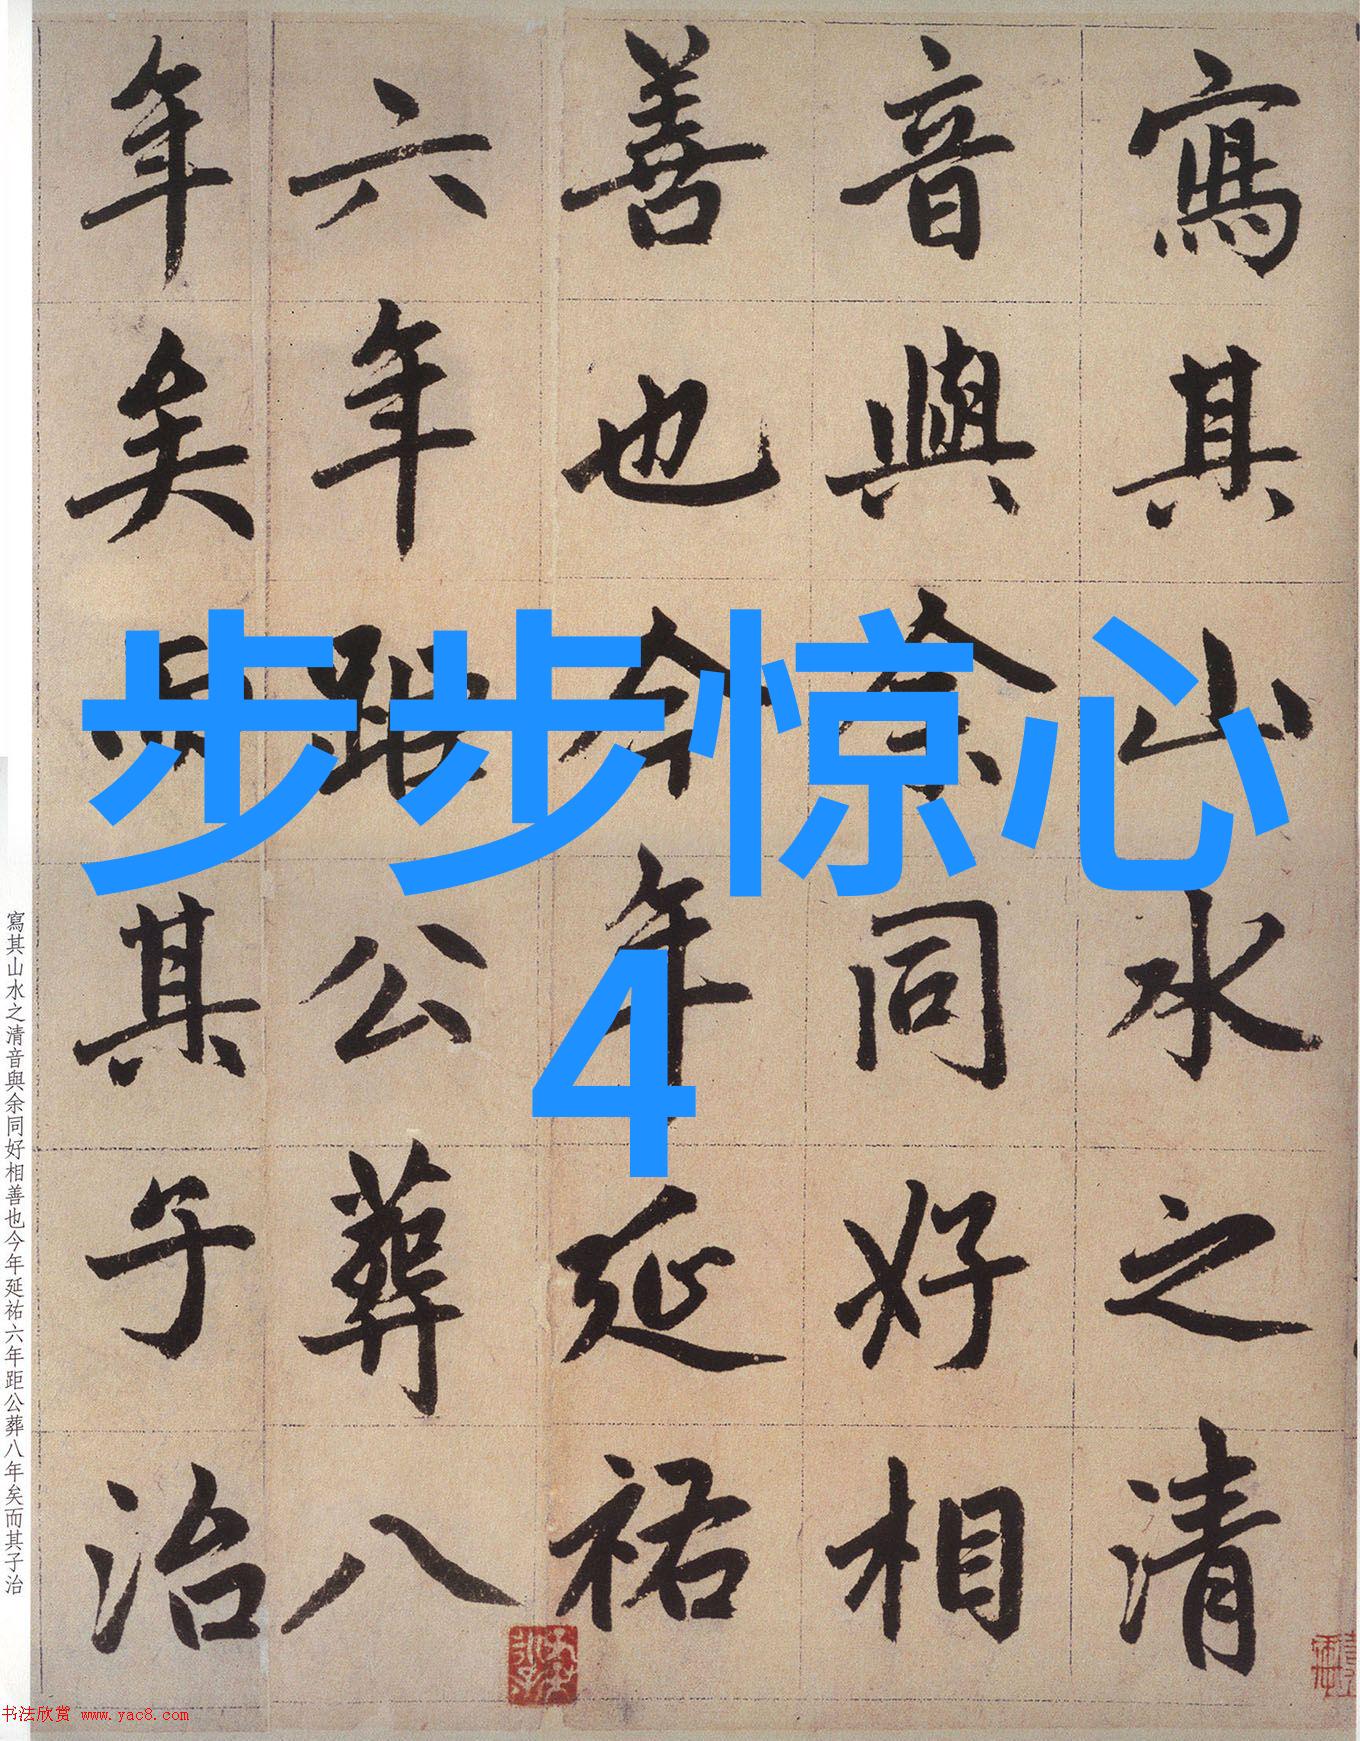 寫其山水之清
音與余同好相
善也今年延祐
六年距公葬八
年矣而其子治
步步惊心
4
寫其山水之清音與余同好相善也今年延祐六年距公葬八年矣而其子治
书法欣赏 www.yac8.com